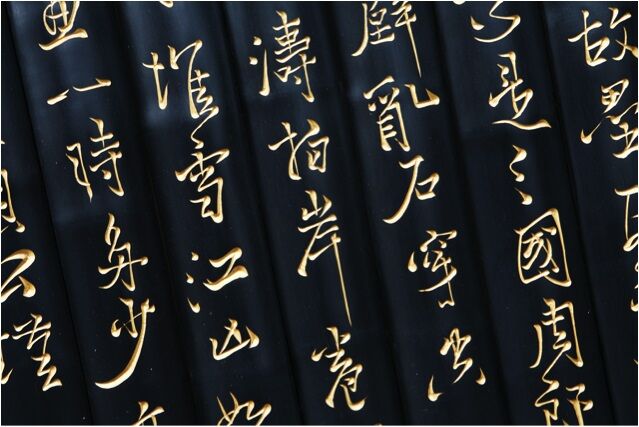 故壘
是三國周郎
壁亂石穿空
濤拍岸卷
堆雪江山如
畫一時多少
公瑾